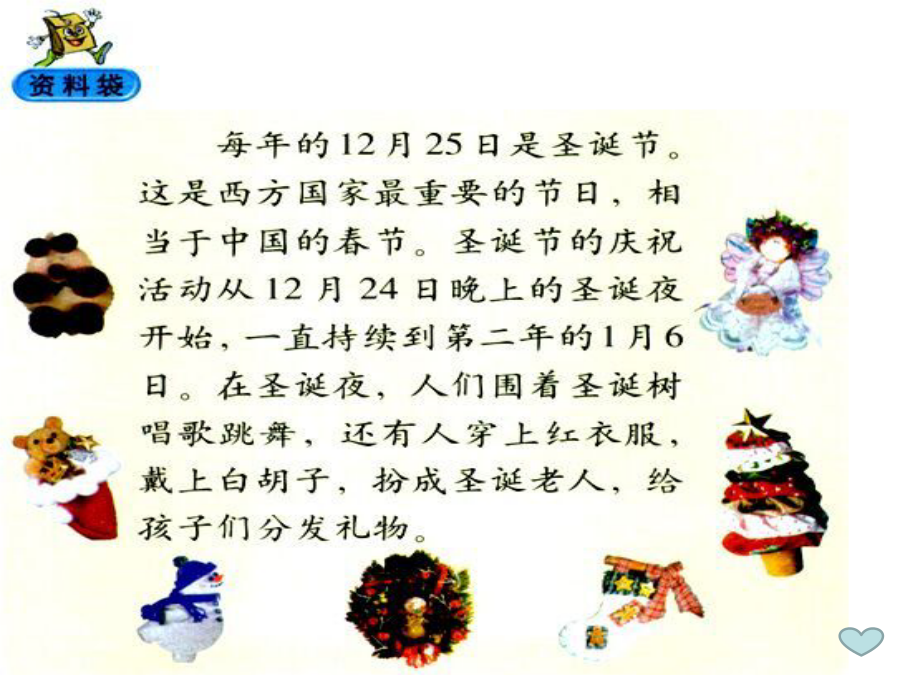 资料袋
每年的12月25日是圣诞节。
这是西方国家最重要的节日，相
当于中国的春节。圣诞节的庆祝
活动从12月24日晚上的圣诞夜
开始，一直持续到第二年的1月6
日。在圣诞夜，人们围着圣诞树
唱歌跳舞，还有人穿上红衣服，
戴上白胡子，扮成圣诞老人，给
孩子们分发礼物。